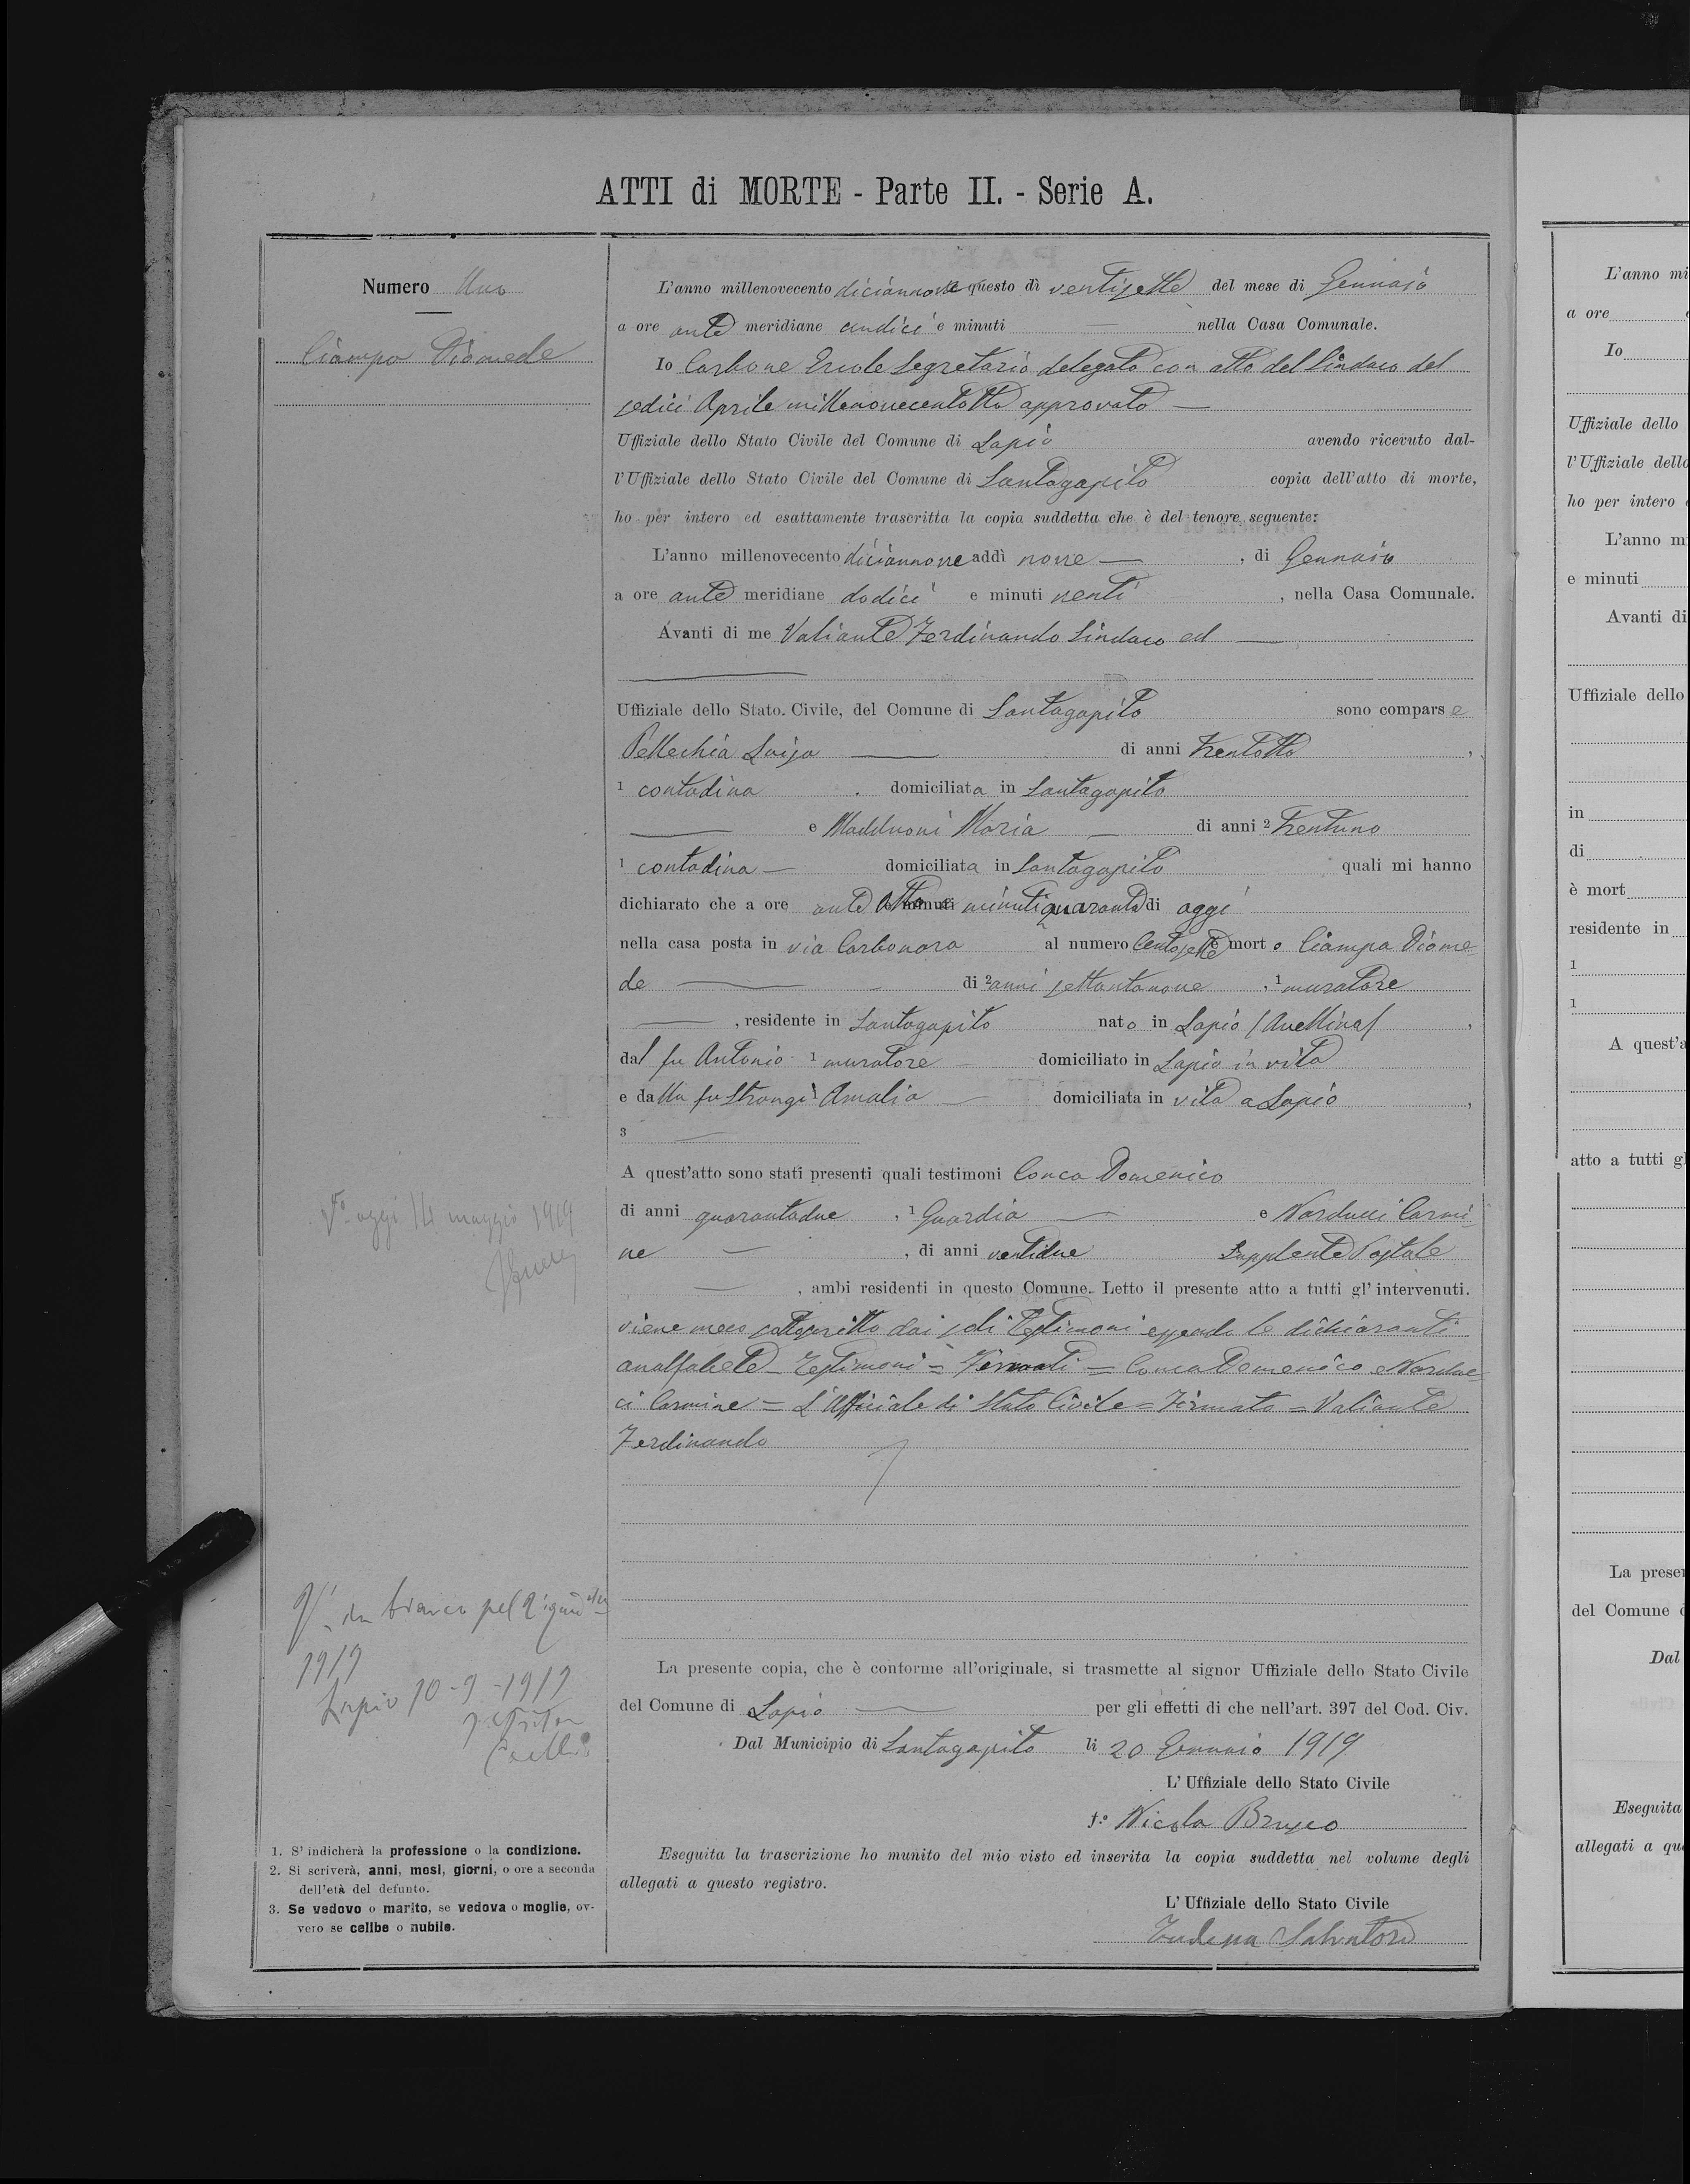 ATTI di MORTE - Parte II. - Serie A.
Numero Uno
Ciampa Diomede
L'anno millenovecento diciannove questo dì ventisette del mese di Gennaio
a ore ante meridiane undici e minuti — nella Casa Comunale.
Io Carbone Ercole Segretario delegato con atto del Sindaco del
sedici Aprile millenovecentotto approvato —
Uffiziale dello Stato Civile del Comune di Lapio avendo ricevuto dal-
l'Uffiziale dello Stato Civile del Comune di Santagapito copia dell'atto di morte,
ho per intero ed esattamente trascritta la copia suddetta che è del tenore seguente:
L'anno millenovecento diciannove addì nove —, di Gennaio
a ore ante meridiane dodici e minuti venti, nella Casa Comunale.
Avanti di me Valiante Ferdinando Sindaco ed —
Uffiziale dello Stato Civile, del Comune di Santagapito sono comparse
Pellechia Luisa — di anni trentotto,
1 contadina domiciliata in Santagapito
— e Maddonni Maria — di anni 2 trentuno
1 contadina — domiciliata in Santagapito quali mi hanno
dichiarato che a ore ante otto e minuti minuti quaranta di oggi
nella casa posta in via Carbonara al numero Centosette è morto Ciampa Diome-
de — di 2 anni settantanove, 1 muratore
—, residente in Santagapito nato in Lapio (Avellina),
dal fu Antonio 1 muratore domiciliato in Lapio in vita
e dalla fu Strangi Amalia — domiciliata in vita a Lapio,
3 —
A quest'atto sono stati presenti quali testimoni Conca Domenico
di anni quarantadue, 1 Guardia — e Narducci Carmi-
ne —, di anni ventidue Supplente Postale
—, ambi residenti in questo Comune. Letto il presente atto a tutti gl'intervenuti.
viene meco sottoscritto dai soli testimoni essendo le dichiaranti
analfabete — Testimoni = Firmati = Conca Domenico e Narduc
ci Carmine = L'Ufficiale di Stato Civile = Firmato = Valiante
Ferdinando
Vo oggi 14 maggio 1919
1919
Lapio 10-9-1919
La presente copia, che è conforme all'originale, si trasmette al signor Uffiziale dello Stato Civile
del Comune di Lapio — per gli effetti di che nell'art. 397 del Cod. Civ.
Dal Municipio di Santagapito li 20 Gennaio 1919
L'Uffiziale dello Stato Civile
f.o Nicola
Eseguita la trascrizione ho munito del mio visto ed inserita la copia suddetta nel volume degli
allegati a questo registro.
L'Uffiziale dello Stato Civile
Salvatore
1. S'indicherà la professione o la condizione.
2. Si scriverà, anni, mesi, giorni, o ore a seconda
dell'età del defunto.
3. Se vedovo o marito, se vedova o moglie, ov-
vero se celibe o nubile.
L'anno mi
a ore
Io
Uffiziale dello
l'Uffiziale dello
ho per intero
L'anno m
e minuti
Avanti di
Uffiziale dello
in
di
è mort
residente in
1
1
A quest'a
atto a tutti g
La presen
del Comune
Dal
Eseguita
allegati a qu